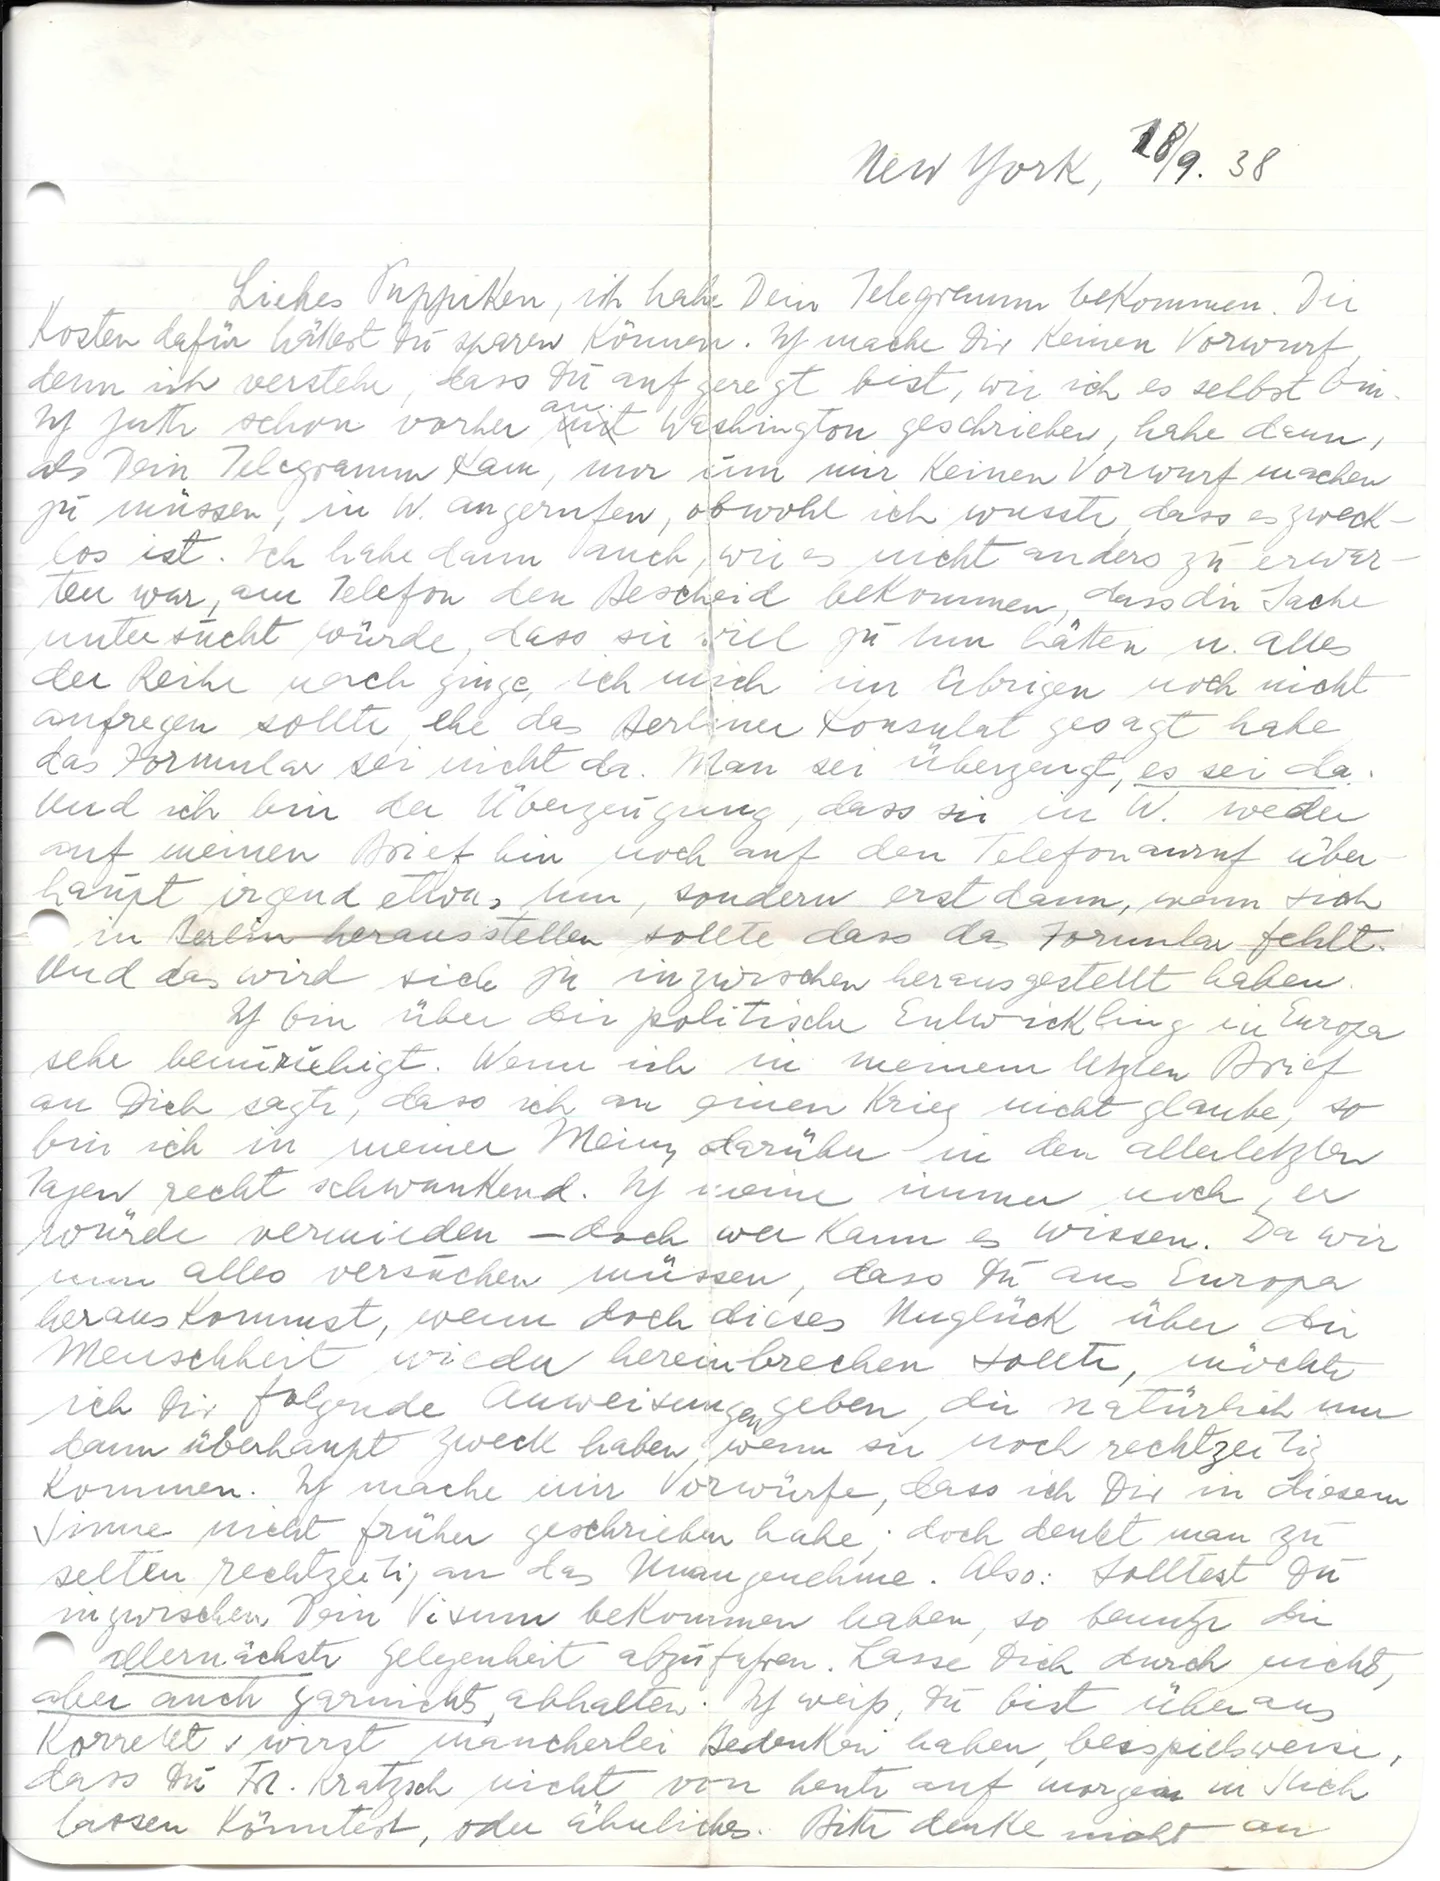 New York, 18/9. 38
Liebes Puppiken, ich habe Dein Telegramm bekommen. Die
Kosten dafür hättest Du sparen können. Ich mache Dir keinen Vorwurf,
denn ich verstehe, dass Du aufgeregt bist, wie ich es selbst bin.
Ich hatte schon vorher an Washington geschrieben, habe dann,
als Dein Telegramm kam, nur um mir keinen Vorwurf machen
zu müssen, in W. angerufen, obwohl ich wusste, dass es zweck-
los ist. Ich habe dann auch, wie es nicht anders zu erwar-
ten war, am Telefon den Bescheid bekommen, dass die Sache
untersucht würde, dass sie viel zu tun hätten u. alles
der Reihe nach ginge, ich mich im übrigen noch nicht
aufregen sollte, ehe das Berliner Konsulat gesagt habe
das Formular sei nicht da. Man sei überzeugt, es sei da.
Und ich bin der Überzeugung, dass sie in W. weder
auf meinen Brief hin noch auf den Telefonanruf über-
haupt irgend etwas tun, sondern erst dann, wenn sich
in Berlin herausstellen sollte dass das Formular fehlt.
Und das wird sich ja inzwischen herausgestellt haben.
Ich bin über die politische Entwicklung in Europa
sehr beunruhigt. Wenn ich in meinem letzten Brief
an Dich sagte, dass ich an einen Krieg nicht glaube, so
bin ich in meiner Meing darüber in den allerletzten
Tagen recht schwankend. Ich meine immer noch, er
würde vermieden – doch wer kann es wissen. Da wir
nun alles versuchen müssen, dass Du aus Europa
herauskommst, wenn doch dieses Unglück über die
Menschheit wieder hereinbrechen sollte, möchte
ich Dir folgende Anweisungen geben, die natürlich nur
dann überhaupt Zweck haben, wenn sie noch rechtzeitig
kommen. Ich mache mir Vorwürfe, dass ich Dir in diesem
Sinne nicht früher geschrieben habe; doch denkt man zu
selten rechtzeitig an das Unangenehme. Also: Solltest Du
inzwischen Dein Visum bekommen haben, so benutze die
allernächste Gelegenheit abzufahren. Lasse Dich durch nichts,
aber auch garnichts, abhalten. Ich weiß, Du bist überaus
korrekt u wirst mancherlei Bedenken haben, beispielsweise,
dass Du Frl. Kratzsch nicht von heute auf morgen im Stich
lassen könntest, oder ähnliches. Bitte denke nicht an